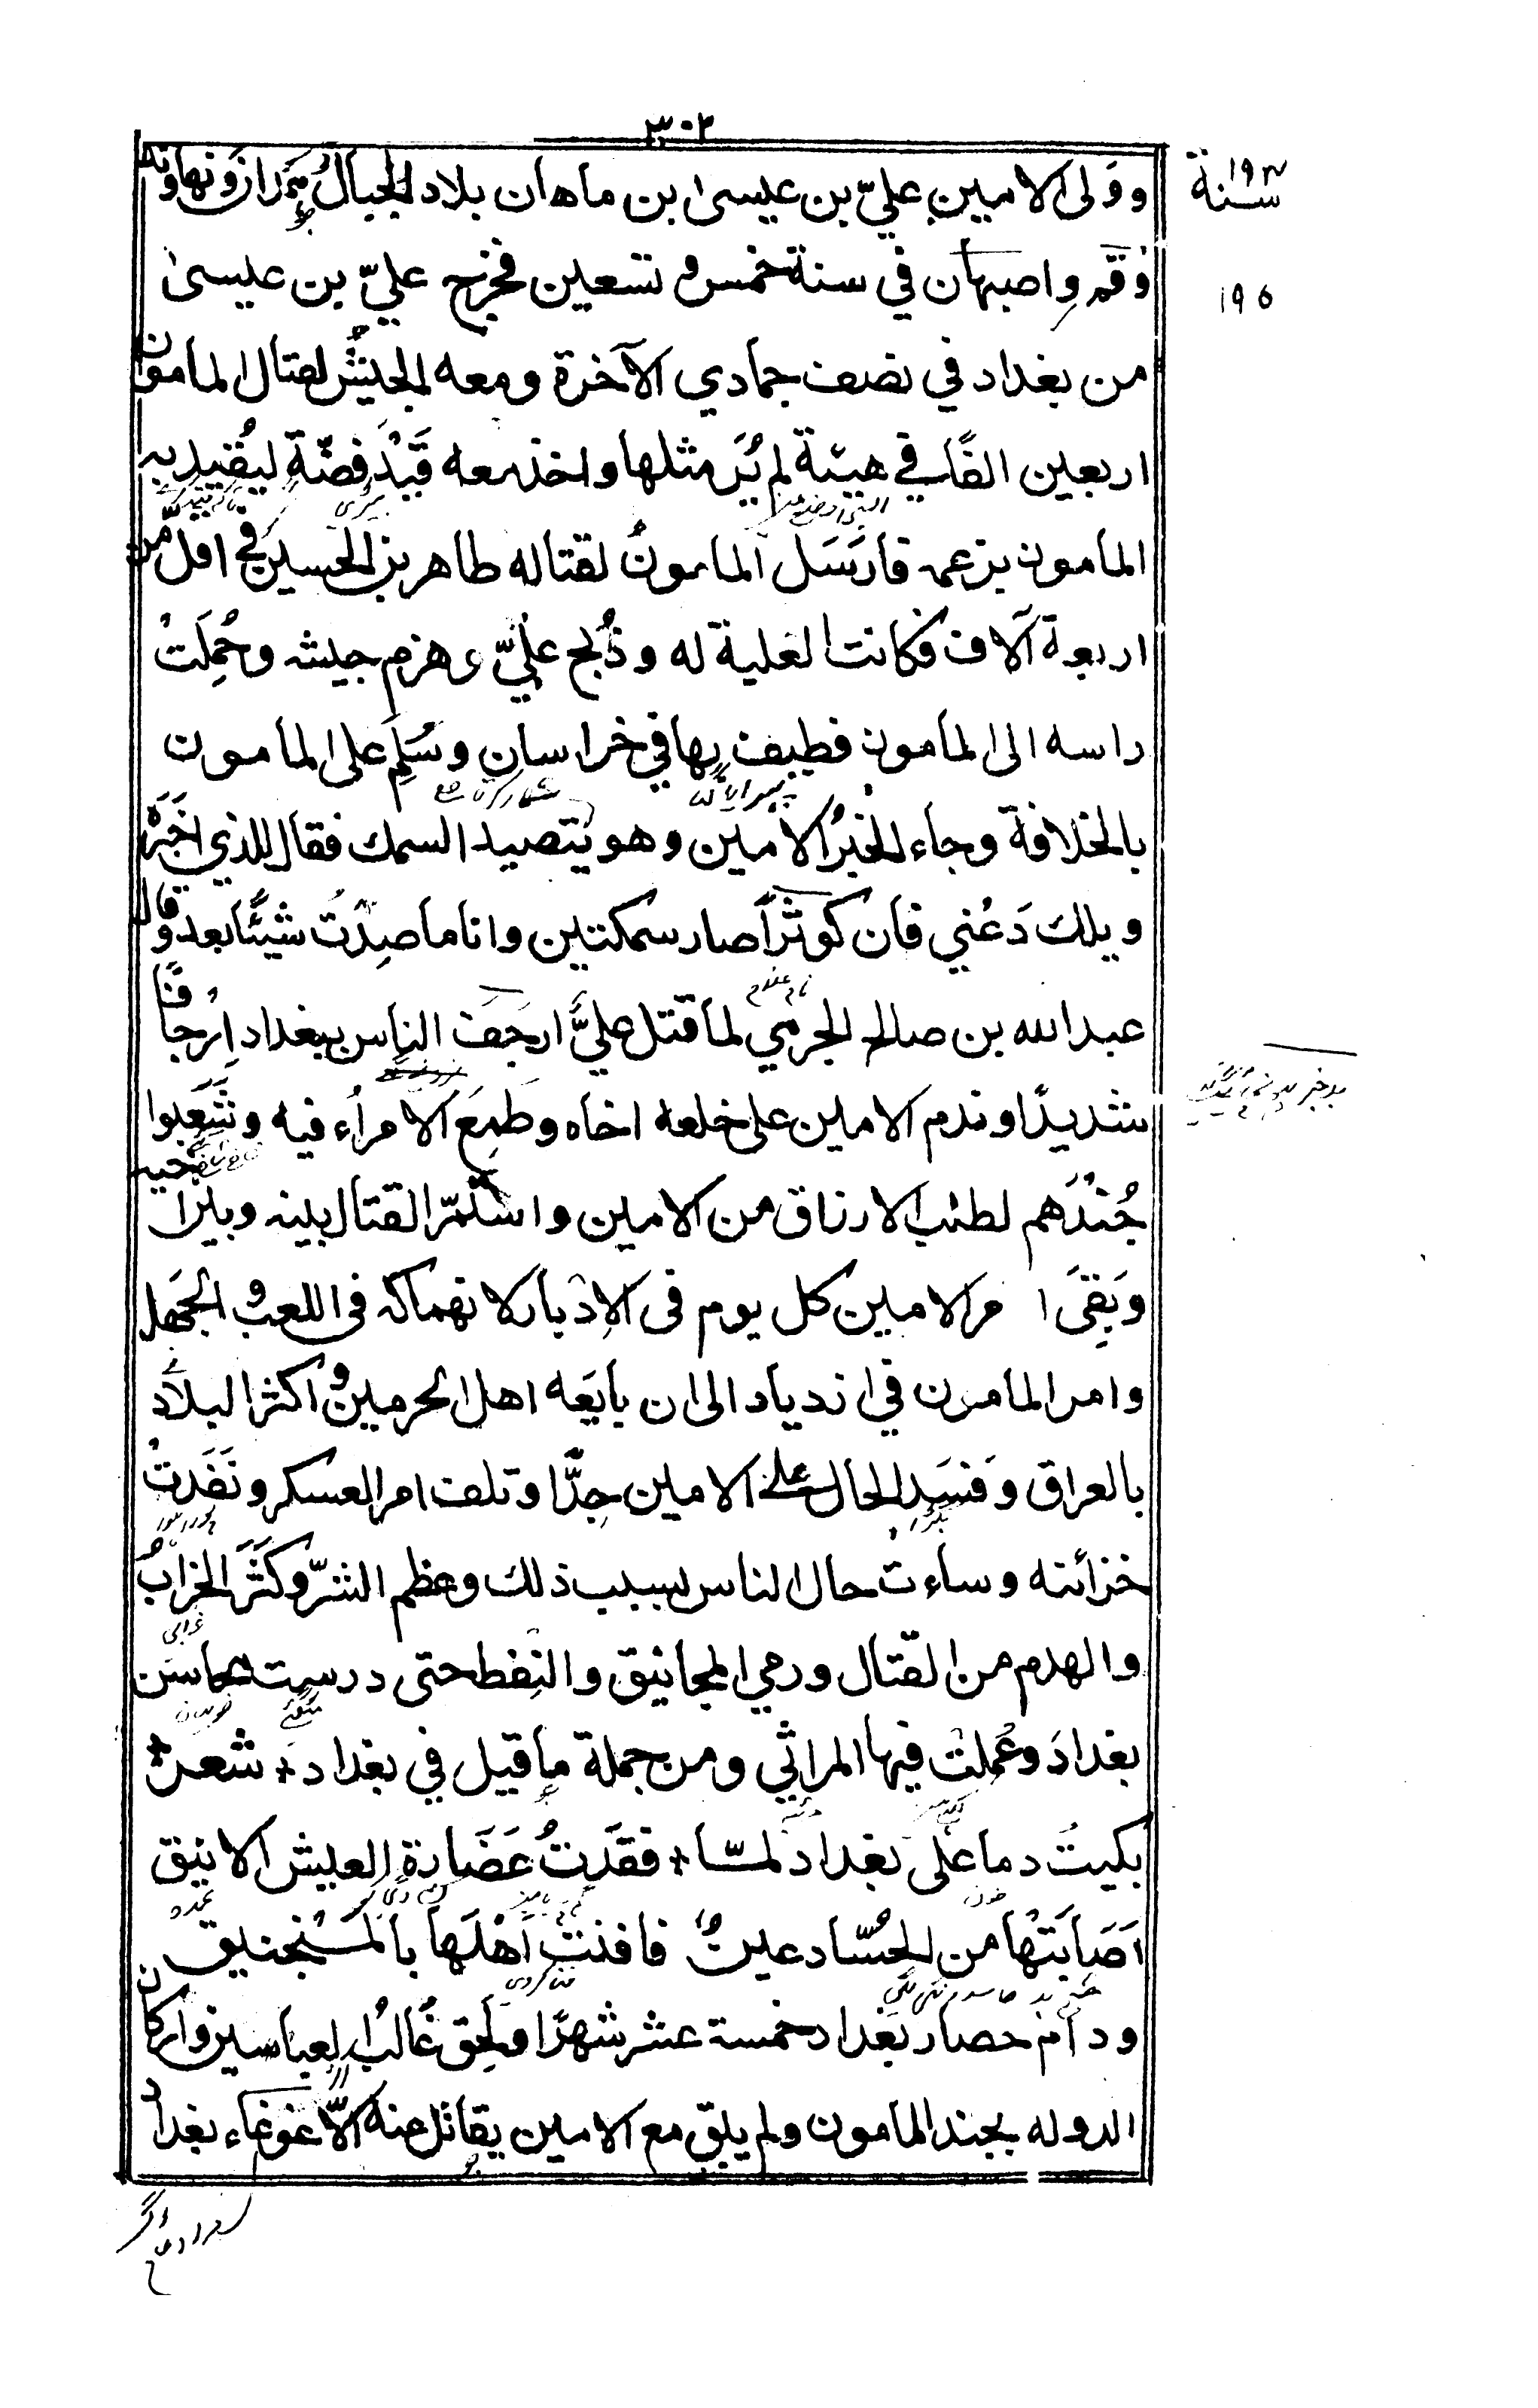 ٣٠٢
سنة ١٩٣
وولى الامين عليّ بن عيسىٰ ابن ماهان بلاد الجبال همدان ونهاوند
وقم واصبهان في سنة خمس و تسعين فخرج عليّ بن عيسىٰ
١٩٥
من بغداد في نصف جمادي الآخرة ومعه الجيش لقتال المامون
اربعين الفًا في هيئة لم يُرَ مثلها واخذ معه قَيْدَ فضّةٍ ليُقيد به
المامون بزعمه فارسَل المامونُ لقتاله طاهر بن الحسين في اقل من
اربعة آلاف فكانت الغلبة له وذُبح عليّ وهزم جيشه وحُمِلَتْ
راسه الى المامون فطيف بها في خراسان وسُلِّم على المامون
بالخلافة وجاء الخبرُ الامين وهو يتصيد السمك فقال للذي اخبَرَه
ويلك دَعْني فان كوثرًا صار سمكتين وانا ما صِدْتُ شيئًا بعد وقال
عبد الله بن صالح الجرمي لما قتل عليٌّ ارجَفَ الناس ببغداد اِرْجافًا
شديدًا وندم الامين على خلعه اخاه وطَمِعَ الامراء فيه وشَغَبوا
جُنْدَهم لطلب الارزاق من الامين واستمرّ القتال بينه وبين اخيه
وبَقِىَ امر الامين كل يوم فى الاِدْبار لانهماكه فى اللعب و الجهل
وامر المامون في ازدياد الى ان بايَعه اهل الحرمين و اكثر البلاد
بالعراق وفسَد الحال على الامين جدًّا وتلف امر العسكر ونَفَدتْ
خزائنه وساءت حال الناس بسبب ذلك وعظم الشرّ وكَثُرَ الخرابُ
والهدم من القتال ورمي المجانيق والنِفط حتى درست محاسن
بغدادَ وعُملتْ فيها المراثي ومن جملة ما قيل في بغداد * شعر *
بكيتُ دما على بغداد لمّا * فقَدتُ غَضَارة العيش الانيق
اَصَابَتْها من الحُسّاد عينٌ فافنتْ اَهْلَها بالمَنْجنيق
ودام حصار بغداد خمسة عشر شهرًا ولَحِق غالبُ العباسين واركان
الدوله بجند المامون ولم يبق مع الامين يقاتل عنه الاّ غوغاء بغداد